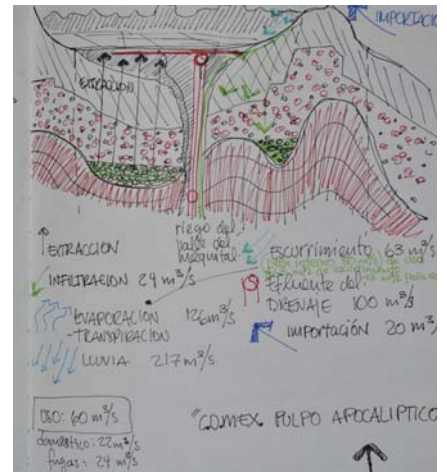 IMPORTACIO
EXTRACCION
riego del
valle del
mezquital
EXTRACCION
INFILTRACION 24 m³/s
EVAPORACION 126 m³/s
-TRANSPIRACION
LLUVIA 217 m³/s
Escurrimiento 63 m³/s
Efluente del
DRENAJE 100 m³/s
importación 20 m³/s
USO: 60 m³/s
doméstico: 22 m³/s
fugas: 24 m³/s
"CDMEX. PULPO APOCALIPTICO